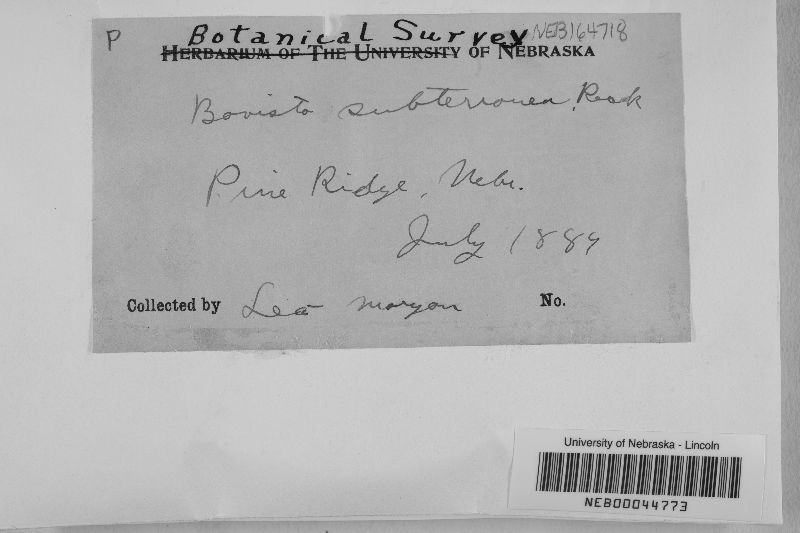 P Botanical Survey NEB164718
HERBARIUM OF THE UNIVERSITY OF NEBRASKA
Bovista subterranea, Peck
Pine Ridge, Nebr.
July 1889
Collected by Leo Morgan No.
University of Nebraska - Lincoln
NEB00044773